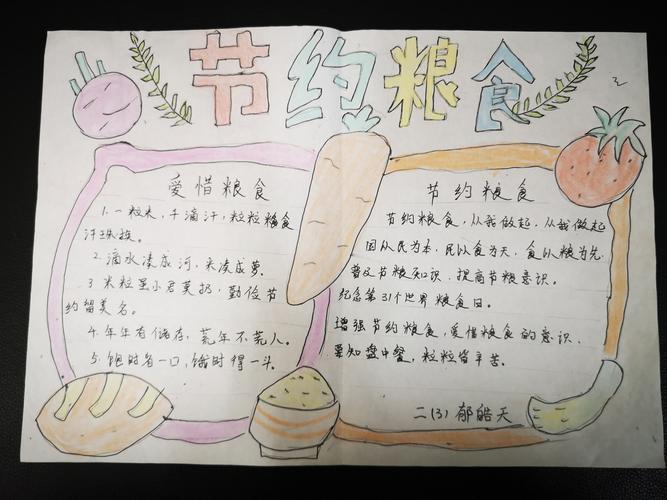 节约粮食
爱惜粮食
1. 一粒米,千滴汗,粒粒粮食
汗珠换。
2. 滴水凑成河,米凑成箩。
3 米粒虽小君莫扔,勤俭节
约留美名。
4. 年年有储存,荒年不荒人。
5. 饱时省一口,饿时得一斗。
节约粮食
节约粮食,从我做起,从我做起
国以民为本,民以食为天,食以粮为先
普及节粮知识,提高节粮意识。
纪念第31个世界粮食日。
增强节约粮食,爱惜粮食的意识。
要知盘中餐,粒粒皆辛苦。
二(3) 郁皓天